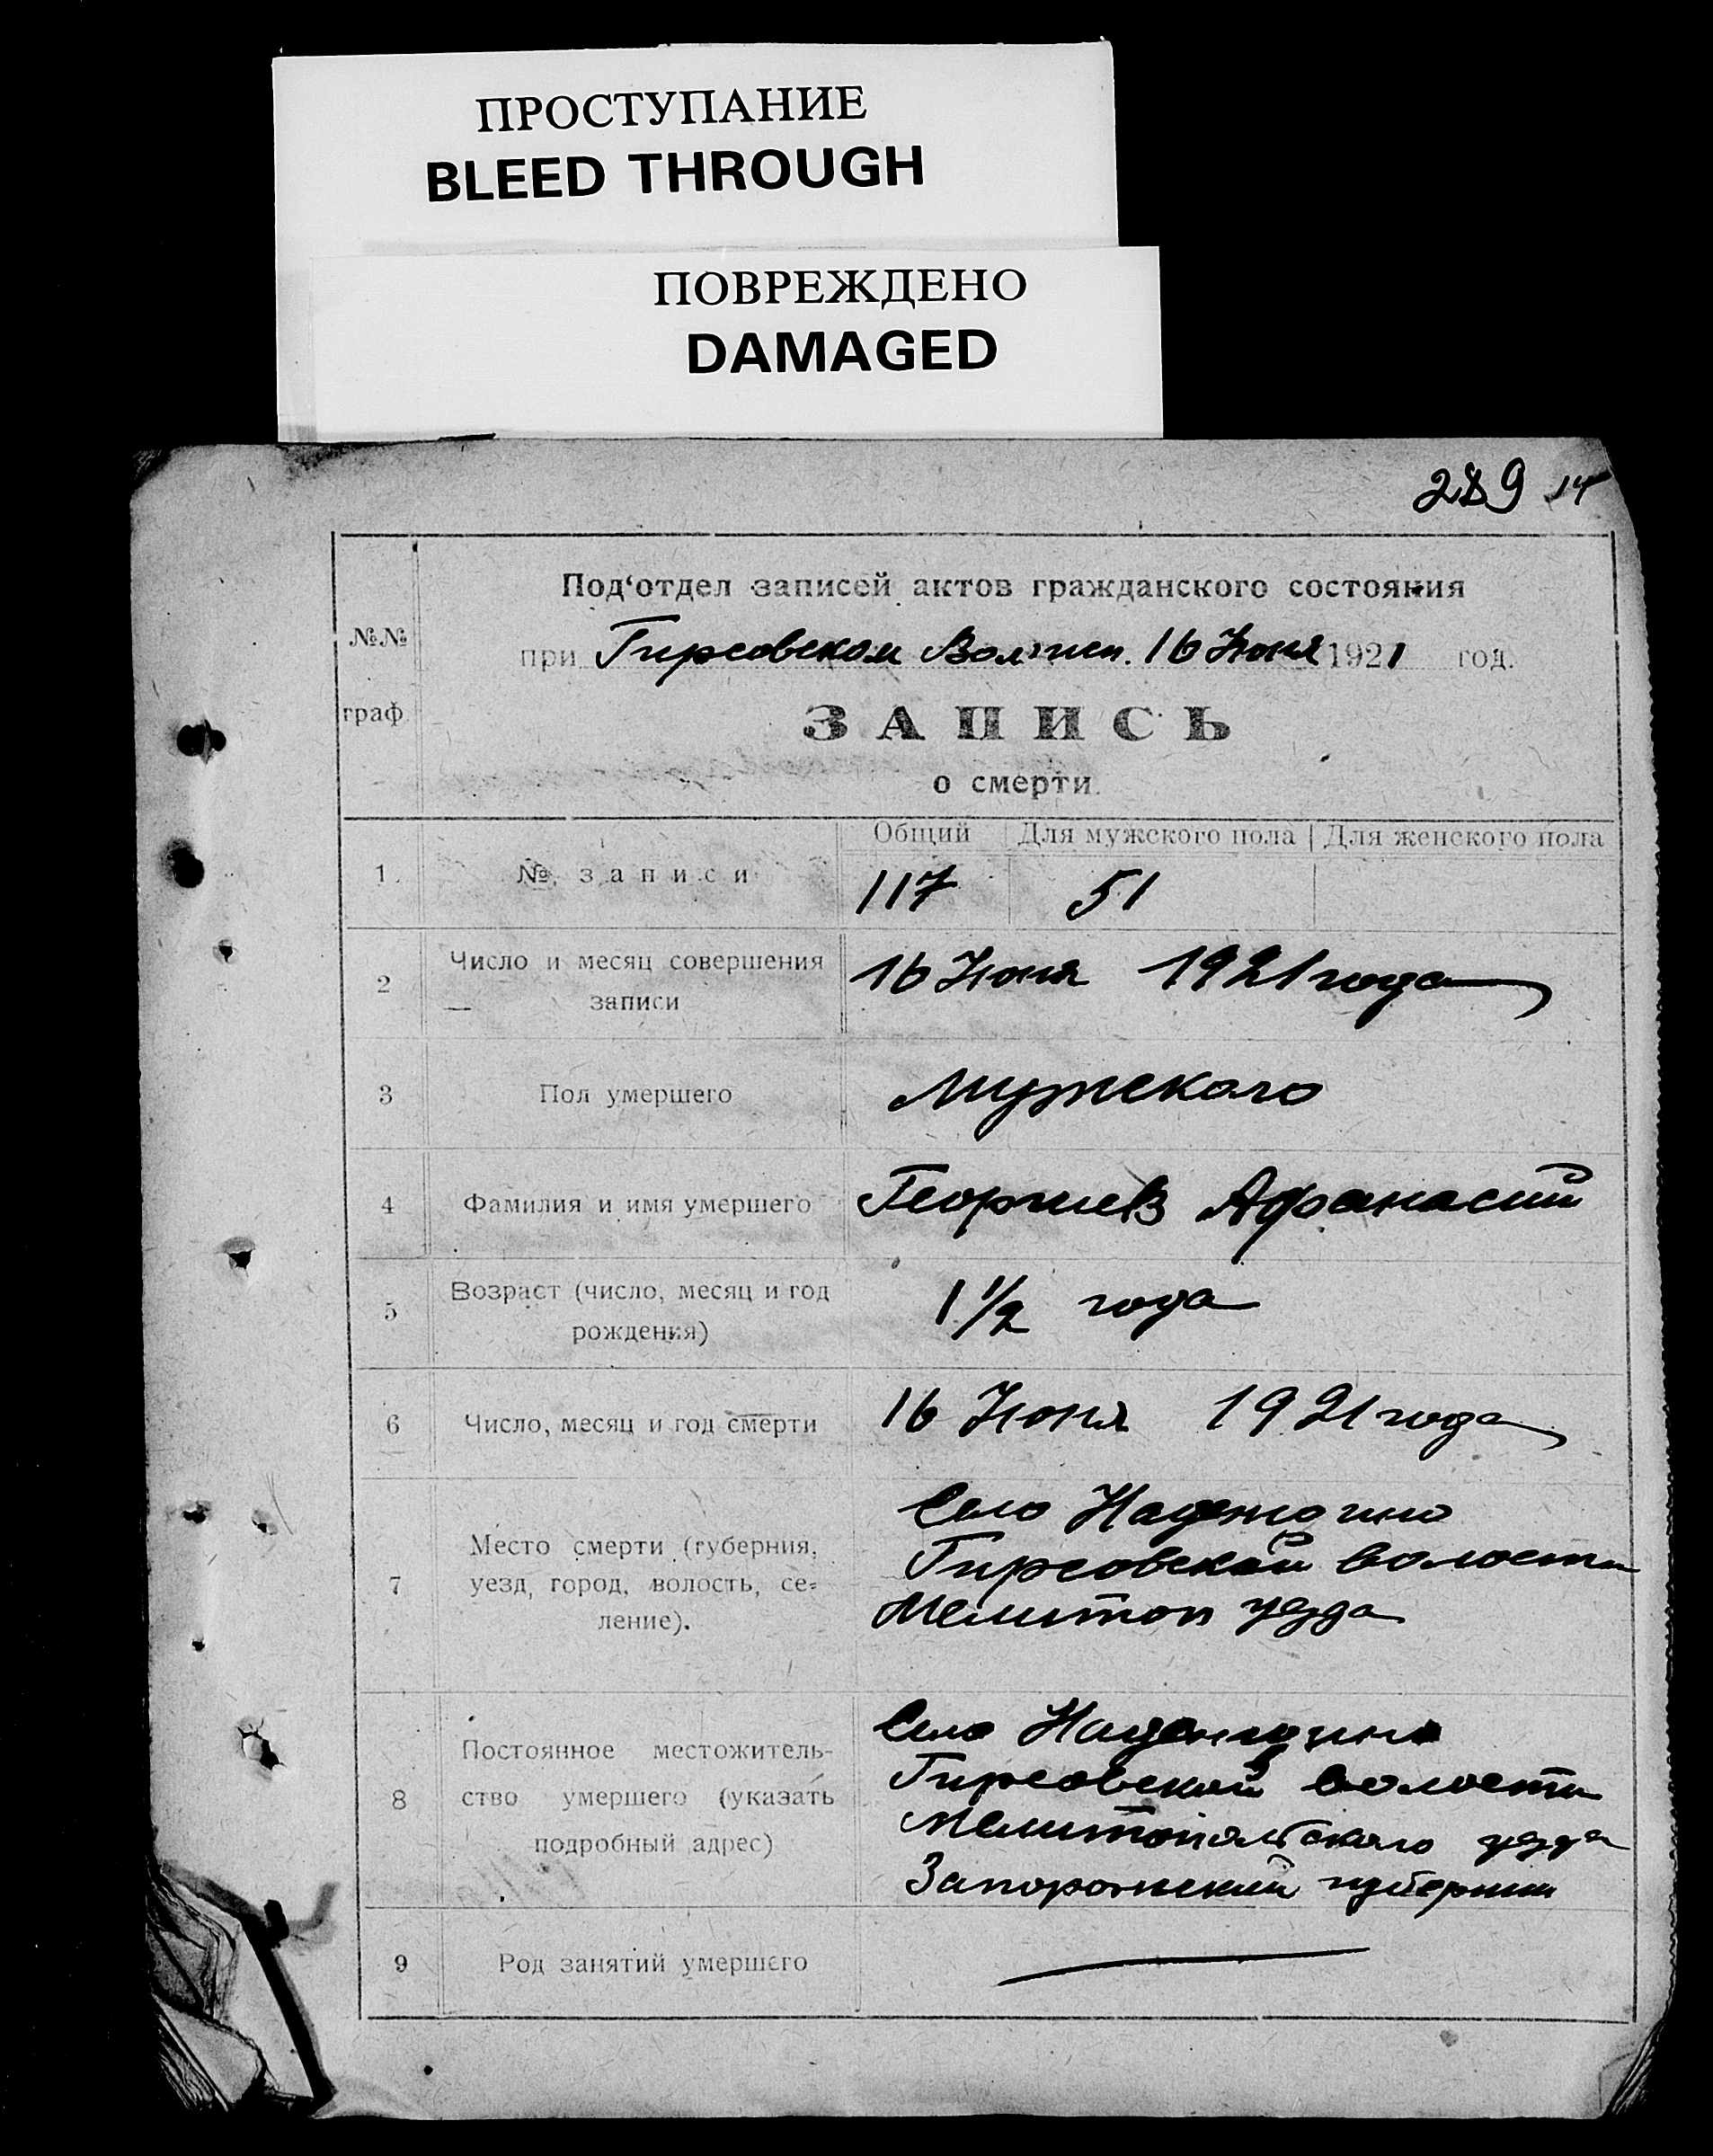 ПРОСТУПАНИЕ
BLEED THROUGH
ПОВРЕЖДЕНО
DAMAGED
289 14
Под‘отдел записей актов гражданского состояния
№№
при Гирсовском Волисп. 16 Июня 1921 год.
граф.
ЗАПИСЬ
о смерти.
Общий Для мужского пола Для женского пола
1. №. записи 117 51
2 Число и месяц совершения записи 16 Июня 1921 года
3 Пол умершего Мужского
4 Фамилия и имя умершего Георгиев Афанасий
5 Возраст (число, месяц и год рождения) 1 1/2 года
6 Число, месяц и год смерти 16 Июня 1921 года
7 Место смерти (губерния, уезд, город, волость, се-
ление).
Село Надеждино
Гирсовской волости
Мелитоп уезда
8 Постоянное местожитель-
ство умершего (указать
подробный адрес)
Село Надеждино
Гирсовской волости
Мелитопольского уезда
Запорожский губернии
9 Род занятий умершего